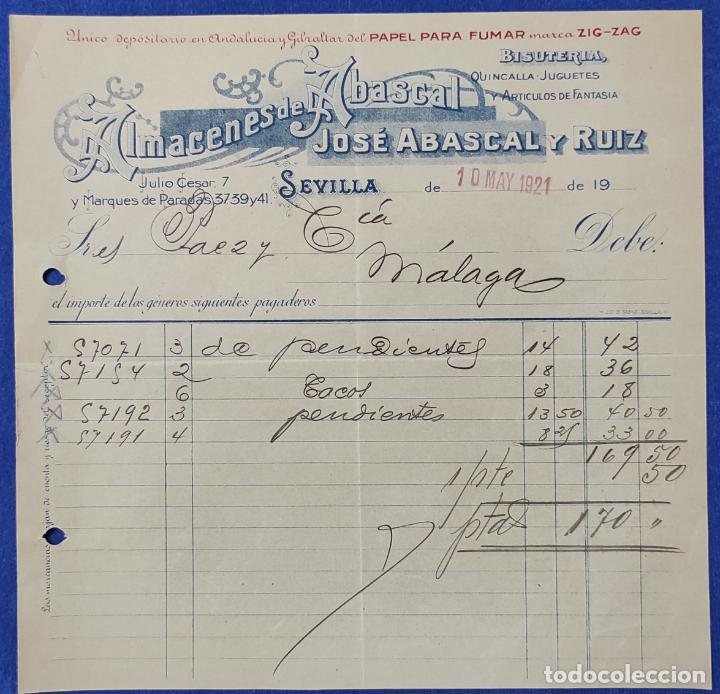 Unico depósitario en Andalucia y Gibraltar del PAPEL PARA FUMAR marca ZIG-ZAG
BISUTERIA,
QUINCALLA-JUGUETES
Y ARTICULOS DE FANTASIA
Almacenes de Abascal
JOSÉ ABASCAL Y RUIZ
Julio Cesar, 7
y Marques de Paradas, 37.39 y 41.
SEVILLA de 10 MAY 1921 de 19
Sres Paez y Cía Debe:
Málaga
el importe de los géneros siguientes pagaderos
57071 3 do pendientes 14 42
57154 2 18 36
6 Tacos 3 18
57192 3 pendientes 13 50 40 50
57191 4 8 25 33 00
169 50
1/pte 50
ptas 170 "
Las mercancias viajan de cuenta y riesgo del receptor
todocoleccion